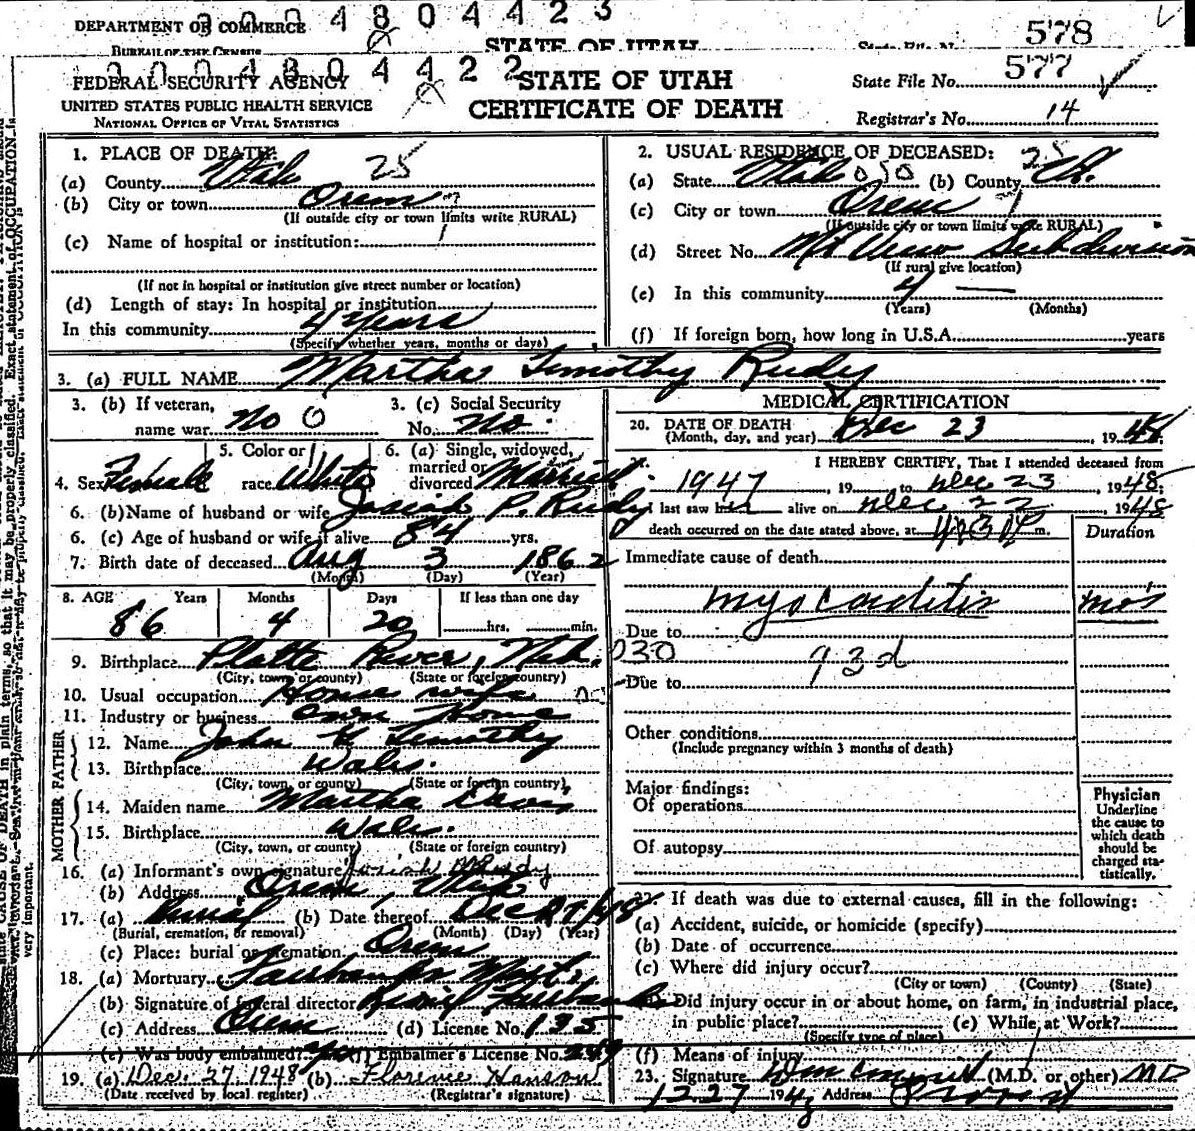 3004804423
DEPARTMENT OF COMMERCE
BUREAU OF THE CENSUS
STATE OF UTAH
State File No. 578
3004804422
FEDERAL SECURITY AGENCY
UNITED STATES PUBLIC HEALTH SERVICE
NATIONAL OFFICE OF VITAL STATISTICS
STATE OF UTAH
CERTIFICATE OF DEATH
State File No. 577
Registrar's No. 14
1. PLACE OF DEATH:
(a) County Utah 25
(b) City or town Orem
(If outside city or town limits write RURAL)
(c) Name of hospital or institution:
(If not in hospital or institution give street number or location)
(d) Length of stay: In hospital or institution
In this community 4 years
(Specify whether years, months or days)
2. USUAL RESIDENCE OF DECEASED:
(a) State Utah 050 (b) County Ut. 25
(c) City or town Orem
(If outside city or town limits write RURAL)
(d) Street No. Mt View Subdivision
(If rural give location)
(e) In this community 4 —
(Years) (Months)
(f) If foreign born, how long in U.S.A. years
3. (a) FULL NAME Martha Timothy Rudy
3. (b) If veteran, name war no 0
3. (c) Social Security No. no.
4. Sex Female
5. Color or race White
6. (a) Single, widowed, married or divorced Married
6. (b) Name of husband or wife Josiah P. Rudy
6. (c) Age of husband or wife if alive 84 yrs.
7. Birth date of deceased Aug 3 1862
(Month) (Day) (Year)
8. AGE Years Months Days If less than one day
86 4 20 hrs. min.
9. Birthplace Platte River, Neb.
(City, town or county) (State or foreign country)
10. Usual occupation House wife
11. Industry or business Own Home
FATHER
12. Name John H Timothy
13. Birthplace Wales.
(City, town, or county) (State or foreign country)
MOTHER
14. Maiden name Martha Davis
15. Birthplace Wales.
(City, town, or county) (State or foreign country)
16. (a) Informant's own signature Rudy
(b) Address Orem, Utah
17. (a) Burial (b) Date thereof Dec 27/48
(Burial, cremation, or removal) (Month) (Day) (Year)
(c) Place: burial or cremation Orem
18. (a) Mortuary Fairbanks Mort.
(b) Signature of funeral director Fairbanks
(c) Address Orem (d) License No. 135
(e) Was body embalmed? yes (f) Embalmer's License No.
19. (a) Dec. 27 1948 (b) Florence Hanson
(Date received by local register) (Registrar's signature)
MEDICAL CERTIFICATION
20. DATE OF DEATH Dec 23, 1948
(Month, day, and year)
I HEREBY CERTIFY, That I attended deceased from
1947, 19 to Dec 23 1948;
I last saw h alive on Dec 22, 1948
death occurred on the date stated above, at m.
Duration
Immediate cause of death
myocarditis mo's
Due to
030 93d
Due to
Other conditions
(Include pregnancy within 3 months of death)
Major findings:
Of operations
Of autopsy
Physician
Underline the cause to which death should be charged statistically.
22. If death was due to external causes, fill in the following:
(a) Accident, suicide, or homicide (specify)
(b) Date of occurrence
(c) Where did injury occur?
(City or town) (County) (State)
Did injury occur in or about home, on farm, in industrial place,
in public place? (e) While at Work?
(Specify type of place)
(f) Means of injury
23. Signature (M.D. or other) MD
12-27 194 Address Provo